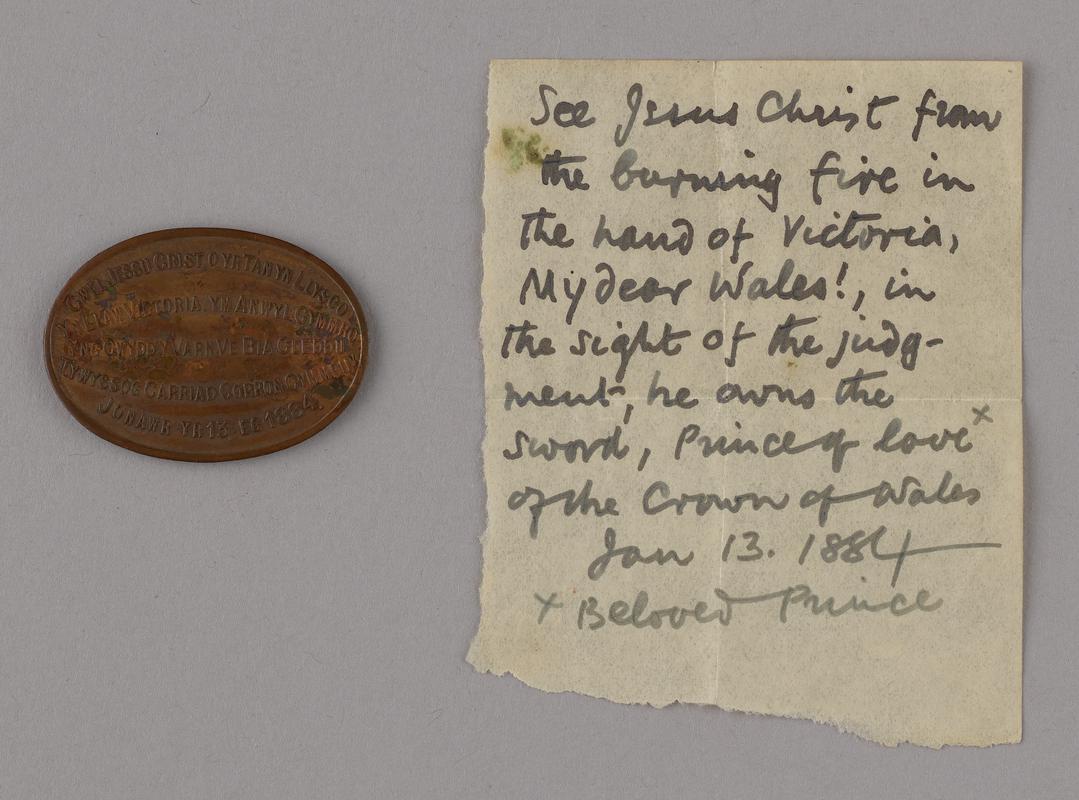 GWEL IESSU GRIST, O YR TAN YN LLYSGO
VICTORIA, YM ANWYL GYMMRO
VARN VE BIA
LYWYSSOG CARRIAD CORRON
JONAWR YR 13 ED 1884
See Jesus Christ from
the burning fire in
the hand of Victoria,
My dear Wales!, in
the sight of the judg-
ment, he owns the
sword, Prince of love x
of the Crown of Wales
Jan 13. 1884
x Beloved Prince